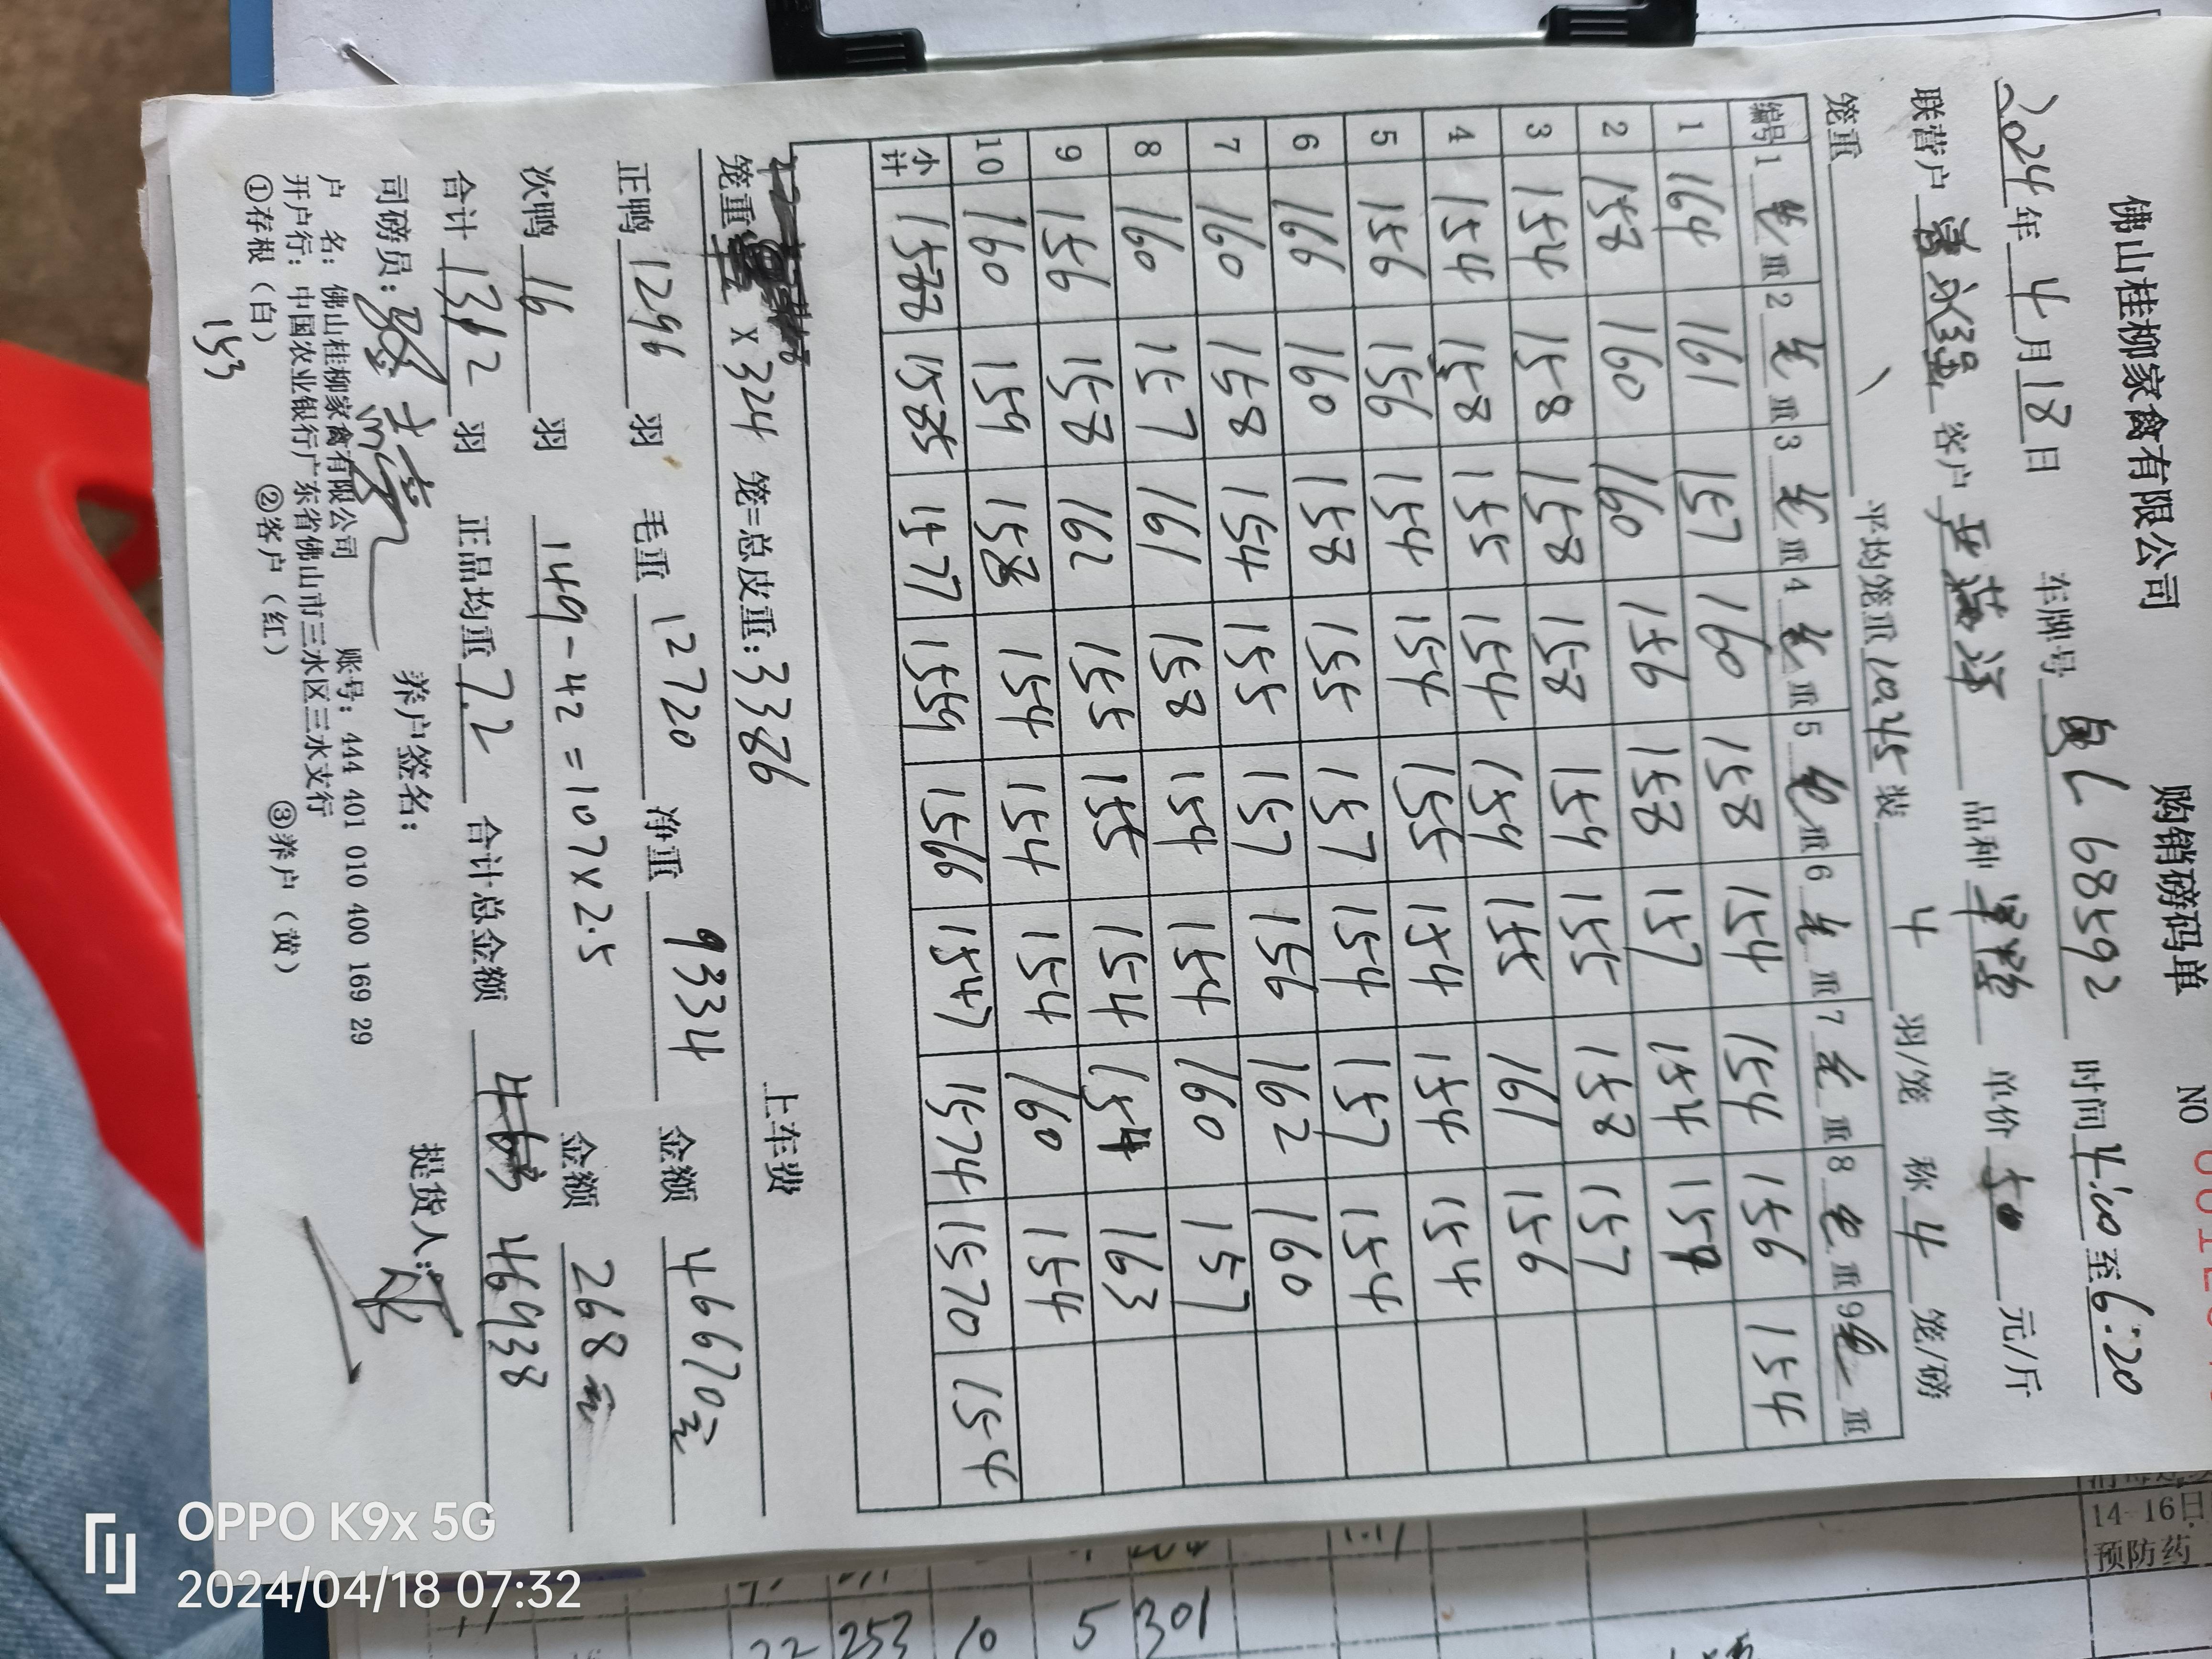 佛山桂柳家禽有限公司 购销磅码单 NO
2024年4月18日 车牌号 L68592 时间4:10至6:20
联营户 永强 客户 品种 单价50元/斤
笼重 平均笼重10.45装4羽/笼 称4笼/磅
编号 1毛重 2毛重 3毛重 4毛重 5毛重 6毛重 7毛重 8毛重 9毛重
1 164 161 157 160 158 154 154 156 154
2 158 160 160 156 158 157 154 159
3 154 158 158 158 159 155 158 157
4 154 158 155 154 159 155 161 156
5 156 156 154 154 155 154 154 154
6 166 160 158 155 157 154 157 154
7 160 158 154 155 157 156 162 160
8 160 157 161 158 154 154 160 157
9 156 158 162 155 155 154 154 163
10 160 159 158 154 154 154 160 154
小计 1588 1585 1577 1559 1566 1547 1574 1570 154
笼重 x 324 笼=总皮重:3386 上车费
正鸭1296羽 毛重12720 净重9334 金额46670元
次鸭16羽 149-42=107x2.5 金额268元
合计1312羽 正品均重7.2 合计总金额 46938
司磅员: 养户签名: 提货人:
户 名: 佛山桂柳家禽有限公司 账号: 444 401 010 400 169 29
开户行: 中国农业银行广东省佛山市三水区三水支行
①存根(白) ②客户(红) ③养户(黄)
153
14-16日
预防药
22 253 10 5 301
OPPO K9x 5G
2024/04/18 07:32